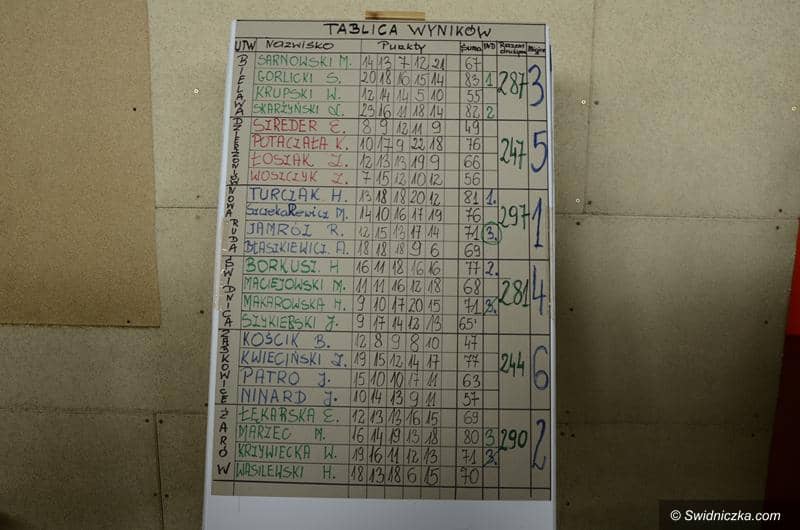 TABLICA WYNIKÓW
UTW NAZWISKO Punkty Suma IND Razem drużyn. Miejsce
BIELAWA
SARNOWSKI M. 14 13 7 12 21 67
GORLICKI S. 20 18 16 15 14 83 1
KRUPSKI W. 12 14 14 5 10 55
SKARŻYŃSKI L. 23 16 11 18 14 82 2
287 3
DZIERŻONIÓW
SZREDER E. 8 9 12 11 9 49
PUTACIAŁA K. 10 17 9 22 18 76
ŁOSIAK J. 12 13 13 19 9 66
WOSZCZYK Z. 7 15 12 10 12 56
247 5
NOWA RUDA
TURCZAK H. 13 18 18 20 12 81 1.
Szczekarewicz M. 14 10 16 17 19 76
JAMRÓZ R. 12 15 13 17 14 71 3.
BŁASZKIEWICZ A. 18 18 18 9 6 69
297 1
ŚWIDNICA
BORKUSZ H 16 11 18 16 16 77 2.
MACIEJOWSKI M. 11 11 16 12 18 68
MAKAROWSKA H. 9 10 17 20 15 71 3.
SZYKIERSKI J. 9 17 14 12 13 65
281 4
ZĄBKOWICE
KOŚCIK B. 12 8 9 8 10 47
KWIECIŃSKI J. 19 15 12 14 17 77
PATRO J. 15 10 10 17 11 63
NINARD J. 10 14 13 9 11 57
244 6
ŻARÓW
ŁĘKARSKA E. 12 13 13 16 15 69
MARZEC M. 16 14 19 13 18 80 3
KRZYWIECKA W. 19 16 11 12 13 71 3.
WASILEWSKI H. 18 13 18 6 15 70
290 2
© Swidniczka.com